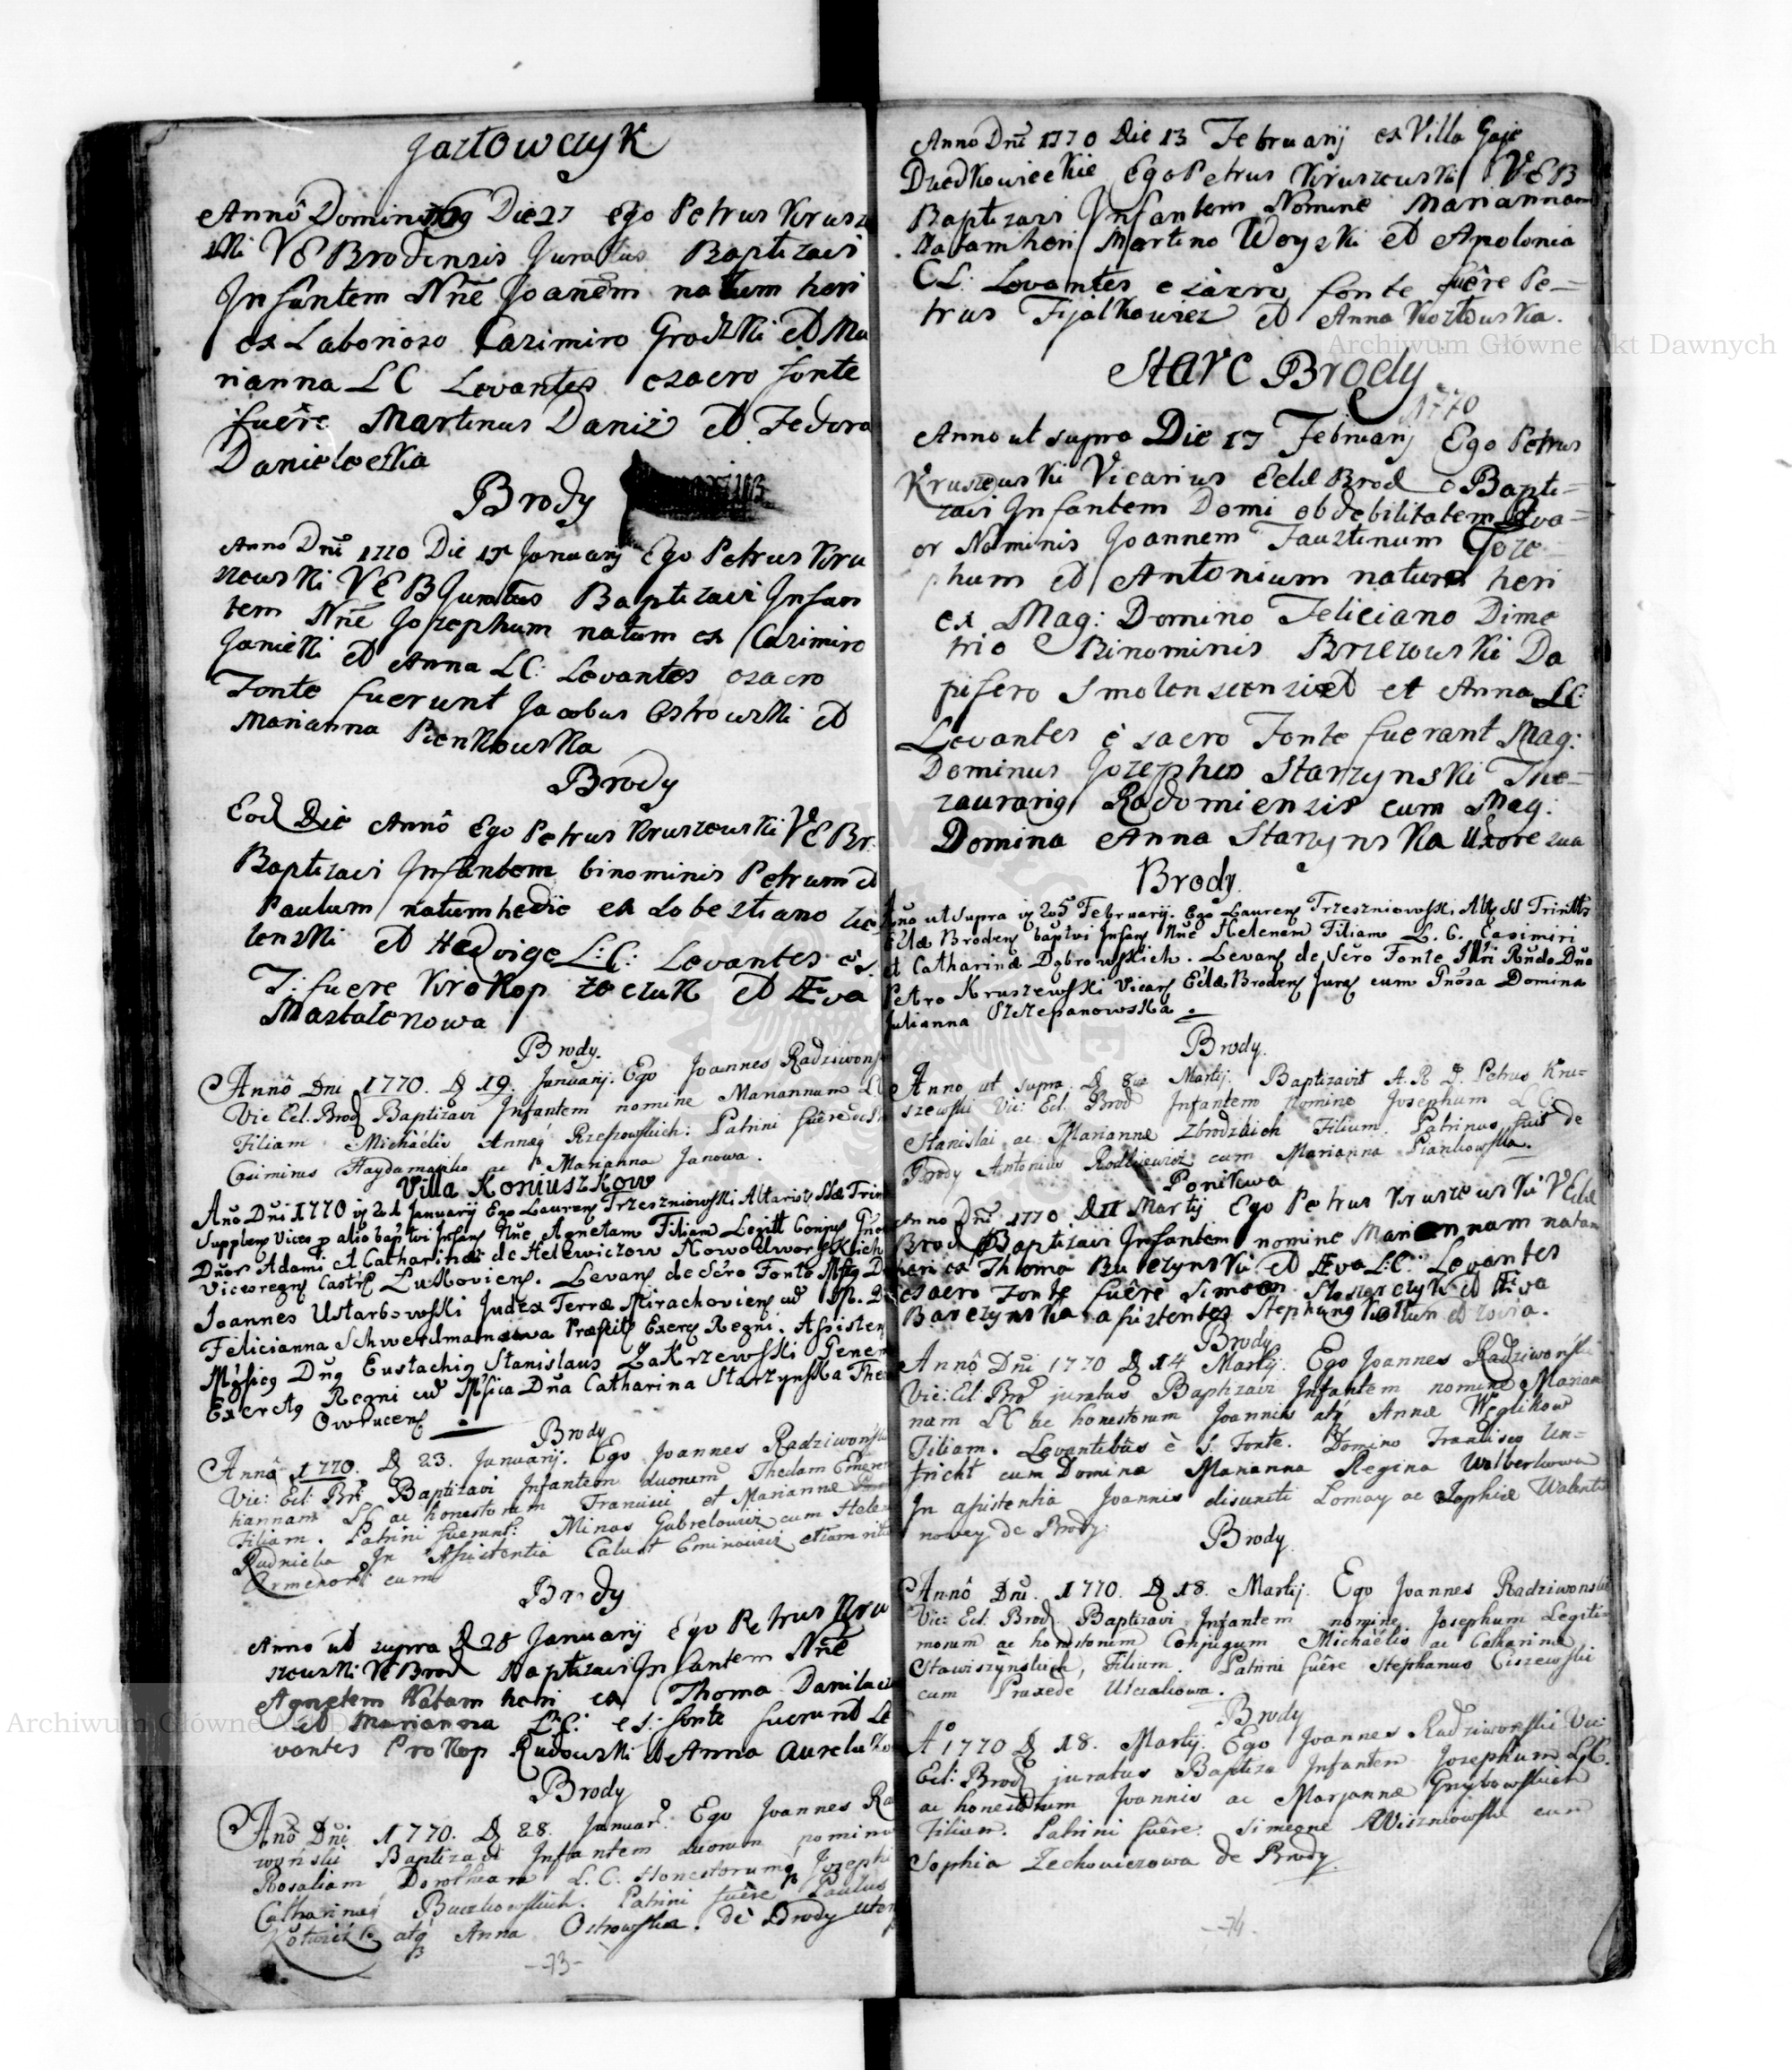 Jaztowczyk
Annô Domini 1769 Die 27 Ego Petrus Krusze
wski VE Brodensis Juratus Baptizavi
Infantem Nñe Joañem natum heri
ex Laborioso Cazimiro Grodzki et Ma
rianna LC Levantes esacro fonte
fuêre Martinus Daniż et Fedora
Danielecka
Brody
Anno Dnî 1770 Die 15 Januarij Ego Petrus Kru
szewski VEB Juratus Baptizavi Infan
tem Nñe Jozephum natum ex Cazimiro
Janicki et Anna LC: Levantes esacro
Fonte fuerunt Jacobus Ostrowski et
Marianna Pienkowska
Brody
Eod Die Annô Ego Petrus Kruszewski VEBr:
Baptizavi Infantem binominis Petrum et
Paulum natum hodie ex Sobestiano
lenski et Hedvige L:C: Levantes e s.
F: fuere Prokop et Eva
Mastalerowa
Brody.
Annô Dni 1770. D 19. Januarij. Ego Joannes Radziwons
Vic Ecl. Brod Baptizavi Infantem nomine Mariannam LC
Filiam Michaelis Annæq Rzepowskich: Patrini fuêre
Casimirus Haydamaska ac Marianna Janowa.
Villa Koniuszkow
Año Dñi 1770 20 Januarij Ego Laurens Trzeszniowski Altarist SSæ Trin
Supplens Vices p alio baptvi Infans Nñe Agnetam Filiam Legitt Conjug
Dnor Adami et Catharinæ de Helewiczow Nowodworskich
Viceregens Castrs Lukoviens. Levans de Sčro Fonte Mfig D
Joannes Ustarbowski Judex Terræ Mirachoviens cû M. D
Felicianna Schwerdmanowa Præfits Exerc Regni. Assisten
Mgficg Dng Eustachig Stanislaus Zakrzewski Gener
Exerctg Regni cû Mfica Dña Catharina Starzynska The
Owrucens
Brody
Annô 1770. D 23. Januarij. Ego Joannes Radziwońs
Vic: Ecl: Brd Baptizavi Infantem duorum Theclam Emeren
tiannam LC ac honestorum Francisci et Mariannæ
Filiam. Patrini fuerunt: Minas Gabrelowicz cum Hele
Rudnicka In Assistentia Calust Eminowicz etiam ritu
Armenor cum
Brody
Anno ut supra D 28 Januarij Ego Petrus Kru
szewski VE Brod Baptizavi Infantem Nñe
Agnetem Natam heri ex Thoma Danilacz
et Marianna L:C: e s: fonte fuerunt Le
vantes Prokop Rudowski et Anna Aurelu
Brody
Anô Dni 1770. D 28. Januar. Ego Joannes Ra
woński Baptizavi Infantem duorum nominu
Rosaliam Dorotheam L.C. Honestorumq Josephi
Catharinæq Buczkowskich. Patrini fuêre Paulus
atq Anna Ostrowska. de Brody
-73-
Anno Dnî 1770 Die 13 Februarij ex Villa Gaje
Dziedkowieckie Ego Petrus Kruszewski VEB
Baptizavi Infantem Nomine Mariannam
Natam heri Martino Woyski et Apolonia
CL: Levantes esacro fonte fuêre Pe=
trus Fijalkowicz et Anna Kozłowska.
Stare Brody
1770
Anno ut supra Die 17 Februarij Ego Petrus
Kruszewski Vicarius Eclæ Brod Bapti=
zavi Infantem Domi ob debilitatem Qva=
or Nominis Joannem Faustinum Joze=
phum et Antonium natum heri
ex Mag: Domino Feliciano Dime
trio Binominis Brzezowski Da
pifero Smolenscensi et Anna LC
Levantes è sacro Fonte fuerant Mag:
Dominus Jozephus Starzynski The=
zaurarig Radomiensis cum Mag:
Domina Anna Starzynska Uxore sua
Brody.
Año ut supra 25 Februarij. Ego Laurens Trzeszniowski Alts SS Trinitts
Eclæ Brodens baptvi Infans Nñe Helenam Filiam L. C. Casimiri
et Catharinæ Dąbrowskich. Levans de Sčro Fonte Rñdo Dño
Petro Kruszewski Vicars Eclæ Brodens Juras cum Gñosa Domina
Julianna Szczepanowska.
Brody.
Anno ut supra. D 8va Martij. Baptizavit A. R D. Petrus Kru=
szewski Vic: Ecl. Brod Infantem nomine Josephum LC:
Stanislai ac Mariannæ Zbrodzkich Filium. Patrinus fuit de
Brody Antonius Rodkiewicz cum Marianna Piankowska.
Ponikwa
Anno Dnî 1770 D 11 Martij Ego Petrus Kruszewski VEclæ
Brod Baptizavi Infantem nomine Mariannam natam
heri ex Thoma Burczynski et Eva L:C: Levantes
esacro Fonte fuêre Simeon et Eva
Barczynska assistentes Stephang et Zosia.
Brody
Annô Dni 1770 D 14 Martij. Ego Joannes Radziwoński
Vic: Ecl. Brd juratus Baptizavi Infantem nomine Marian
nam LC ac honestorum Joannis atq Annæ Węglikow
Filiam. Levantibus è S. Fonte. Domino Francisco Un=
tricht cum Domina Marianna Regina Walberkowa
In assistentia Joannis disuniti Lomay ac Sophiæ Walenti
nowey de Brody.
Brody.
Annô Dni. 1770. D 18. Martij. Ego Joannes Radziwonski
Vic: Ecl. Brod Baptizavi Infantem nomine Josephum Legiti=
morum ac honestorum Conjugum Michaëlis ac Catharinæ
Stawiszynskich, Filium. Patrini fuêre Stephanus Ciszewski
cum Praxede Ulczakowa.
Brody
Aº 1770 D 18. Martij. Ego Joannes Radziwonski Vic:
Ecl: Brod juratus Baptizo Infantem Josephum LC.
ac honestorum Joannis ac Marjannæ Grzybowskich
Filium. Patrini fuêre. Simeone Wiszniowski cum
Sophia Zechowiczowa de Brody.
-74-
Archiwum Główne Akt Dawnych
Archiwum Główne Akt Dawnych